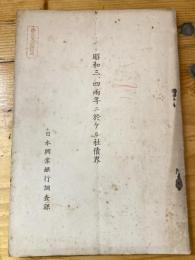 昭和三、四兩年ニ於ケル社債界
日本興業銀行調査課